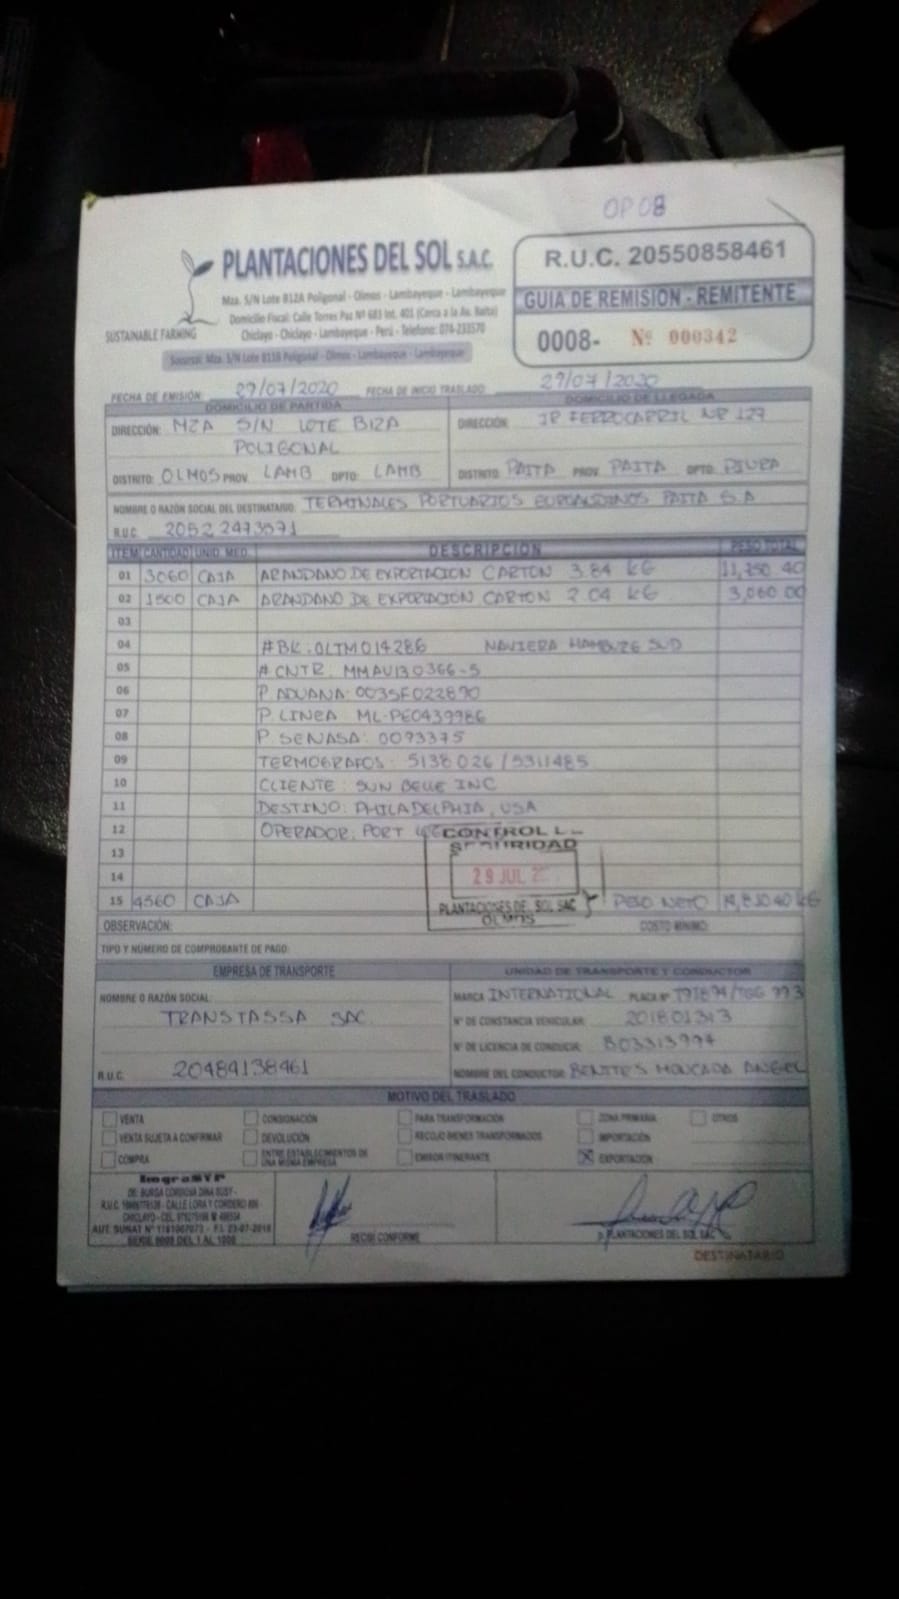 OP08
PLANTACIONES DEL SOL S.A.C.
Mza. S/N Lote B12A Poligonal - Olmos - Lambayeque - Lambayeque
Domicilio Fiscal: Calle Torres Paz Nº 683 Int. 401 (Cerca a la Av. Balta)
Chiclayo - Chiclayo - Lambayeque - Perú - Telefono: 074-233570
SUSTAINABLE FARMING
Sucursal: Mza. S/N Lote B11B Poligonal - Olmos - Lambayeque - Lambayeque
R.U.C. 20550858461
GUIA DE REMISION - REMITENTE
0008- Nº 000342
FECHA DE EMISIÓN: 29/07/2020 FECHA DE INICIO TRASLADO: 29/07/2020
DOMICILIO DE PARTIDA
DIRECCIÓN: MZA S/N LOTE B12A
POLIGONAL
DISTRITO: OLMOS PROV. LAMB DPTO: LAMB
DOMICILIO DE LLEGADA
DIRECCIÓN: JR FERROCARRIL NR 127
DISTRITO: PAITA PROV. PAITA DPTO: PIURA
NOMBRE O RAZÓN SOCIAL DEL DESTINATARIO: TERMINALES PORTUARIOS EUROANDINOS PAITA S.A
R.U.C. 20522473571
ITEM CANTIDAD UNID. MED. DESCRIPCIÓN PESO TOTAL
01 3060 CAJA ARANDANO DE EXPORTACION CARTON 3.84 KG 11,750.40
02 1500 CAJA ARANDANO DE EXPORTACION CARTON 2.04 KG 3,060.00
03
04 #BK: OLTM014286 NAVIERA HAMBURG SUD
05 # CNTR: MMAU130366-5
06 P. ADUANA: 003SF022890
07 P. LINEA ML-PE0439986
08 P. SENASA: 0093375
09 TERMOGRAFOS: 5138026 / 5311485
10 CLIENTE: SUN BELLE INC
11 DESTINO: PHILADELPHIA, USA
12 OPERADOR: PORT
13
14
CONTROL
SEGURIDAD
29 JUL
PLANTACIONES DEL SOL SAC
OLMOS
15 4560 CAJA PESO NETO 14,810.40 KG
OBSERVACIÓN: COSTO MINIMO:
TIPO Y NÚMERO DE COMPROBANTE DE PAGO:
EMPRESA DE TRANSPORTE
NOMBRE O RAZÓN SOCIAL:
TRANSTASSA SAC
R.U.C. 20484138461
UNIDAD DE TRANSPORTE Y CONDUCTOR
MARCA INTERNATIONAL PLACA Nº
Nº DE CONSTANCIA VEHICULAR: 201801313
Nº DE LICENCIA DE CONDUCIR: B03313994
NOMBRE DEL CONDUCTOR: BENITES MONCADA ANGEL
MOTIVO DEL TRASLADO
VENTA CONSIGNACIÓN PARA TRANSFORMACIÓN ZONA PRIMARIA OTROS
VENTA SUJETA A CONFIRMAR DEVOLUCIÓN RECOJO BIENES TRANSFORMADOS IMPORTACIÓN
COMPRA ENTRE ESTABLECIMIENTOS DE UNA MISMA EMPRESA EMISOR ITINERANTE X EXPORTACIÓN
ImograSYP
DE: BURGA CORDOVA DINA SUSY -
CALLE LORA Y CORDERO
CHICLAYO - CEL.
F.I. 23-07-2018
SERIE 0008 DEL 1 AL 1000
RECIBI CONFORME
P. PLANTACIONES DEL SOL SAC
DESTINATARIO